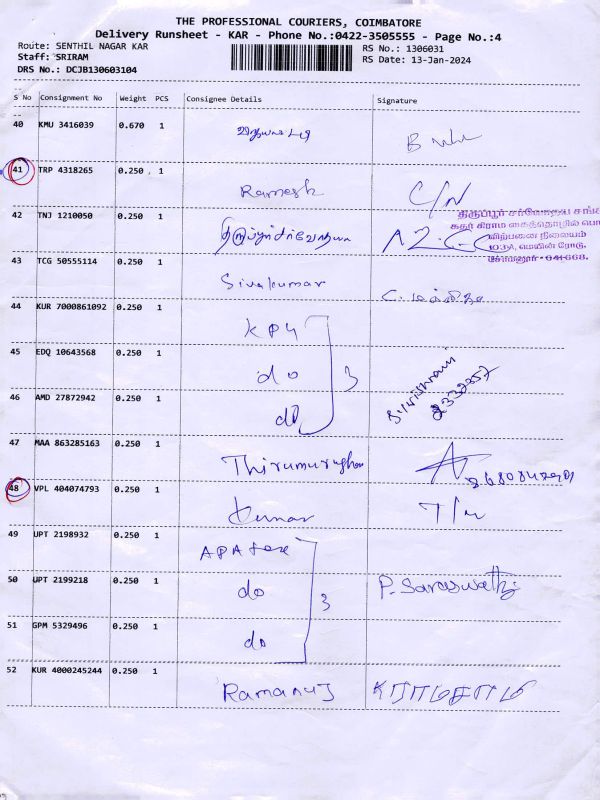 THE PROFESSIONAL COURIERS, COIMBATORE
Delivery Runsheet - KAR - Phone No.:0422-3505555 - Page No.:4
Route: SENTHIL NAGAR KAR
RS No.: 1306031
Staff: SRIRAM
RS Date: 13-Jan-2024
DRS No.: DCJB130603104
S No Consignment No Weight PCS Consignee Details Signature
40 KMU 3416039 0.670 1
41 TRP 4318265 0.250 1
Ramesh C/N
42 TNJ 1210050 0.250 1
திருப்பூர் சர்வோதய சங்கம்
கதர் கிராம கைத்தொழில் பொ
விற்பனை நிலையம்
103A, மெயின் ரோடு,
சோமனூர் - 641668.
43 TCG 50555114 0.250 1
Sivakumar
44 KUR 7000861092 0.250 1
KPY
45 EDQ 10643568 0.250 1
do 3
46 AMD 27872942 0.250 1
do
47 MAA 863285163 0.250 1
Thirumurughan
48 VPL 404074793 0.250 1
Kumar
49 UPT 2198932 0.250 1
50 UPT 2199218 0.250 1
do 3 P. Saraswathi
51 GPM 5329496 0.250 1
do
52 KUR 4000245244 0.250 1
Ramanuj